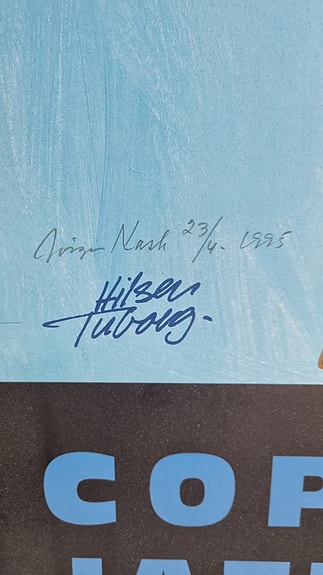 Jörgen Nash 23/4. 1995
Hilsen
Tuborg.
COP
JAZZ